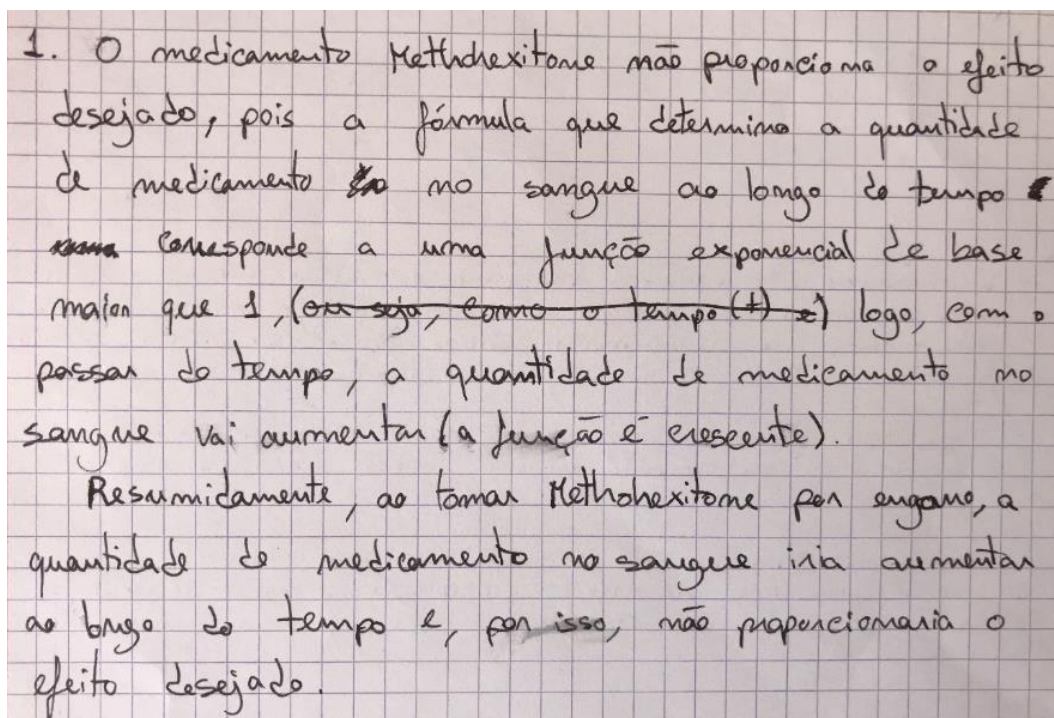 1. O medicamento Methohexitone não proporciona o efeito
desejado, pois a fórmula que determina a quantidade
de medicamento no sangue ao longo do tempo
corresponde a uma função exponencial de base
maior que 1, (ou seja, como o tempo (t) é) logo, com o
passar do tempo, a quantidade de medicamento no
sangue vai aumentar (a função é crescente).
Resumidamente, ao tomar Methohexitone por engano, a
quantidade de medicamento no sangue iria aumentar
ao longo do tempo e, por isso, não proporcionaria o
efeito desejado.